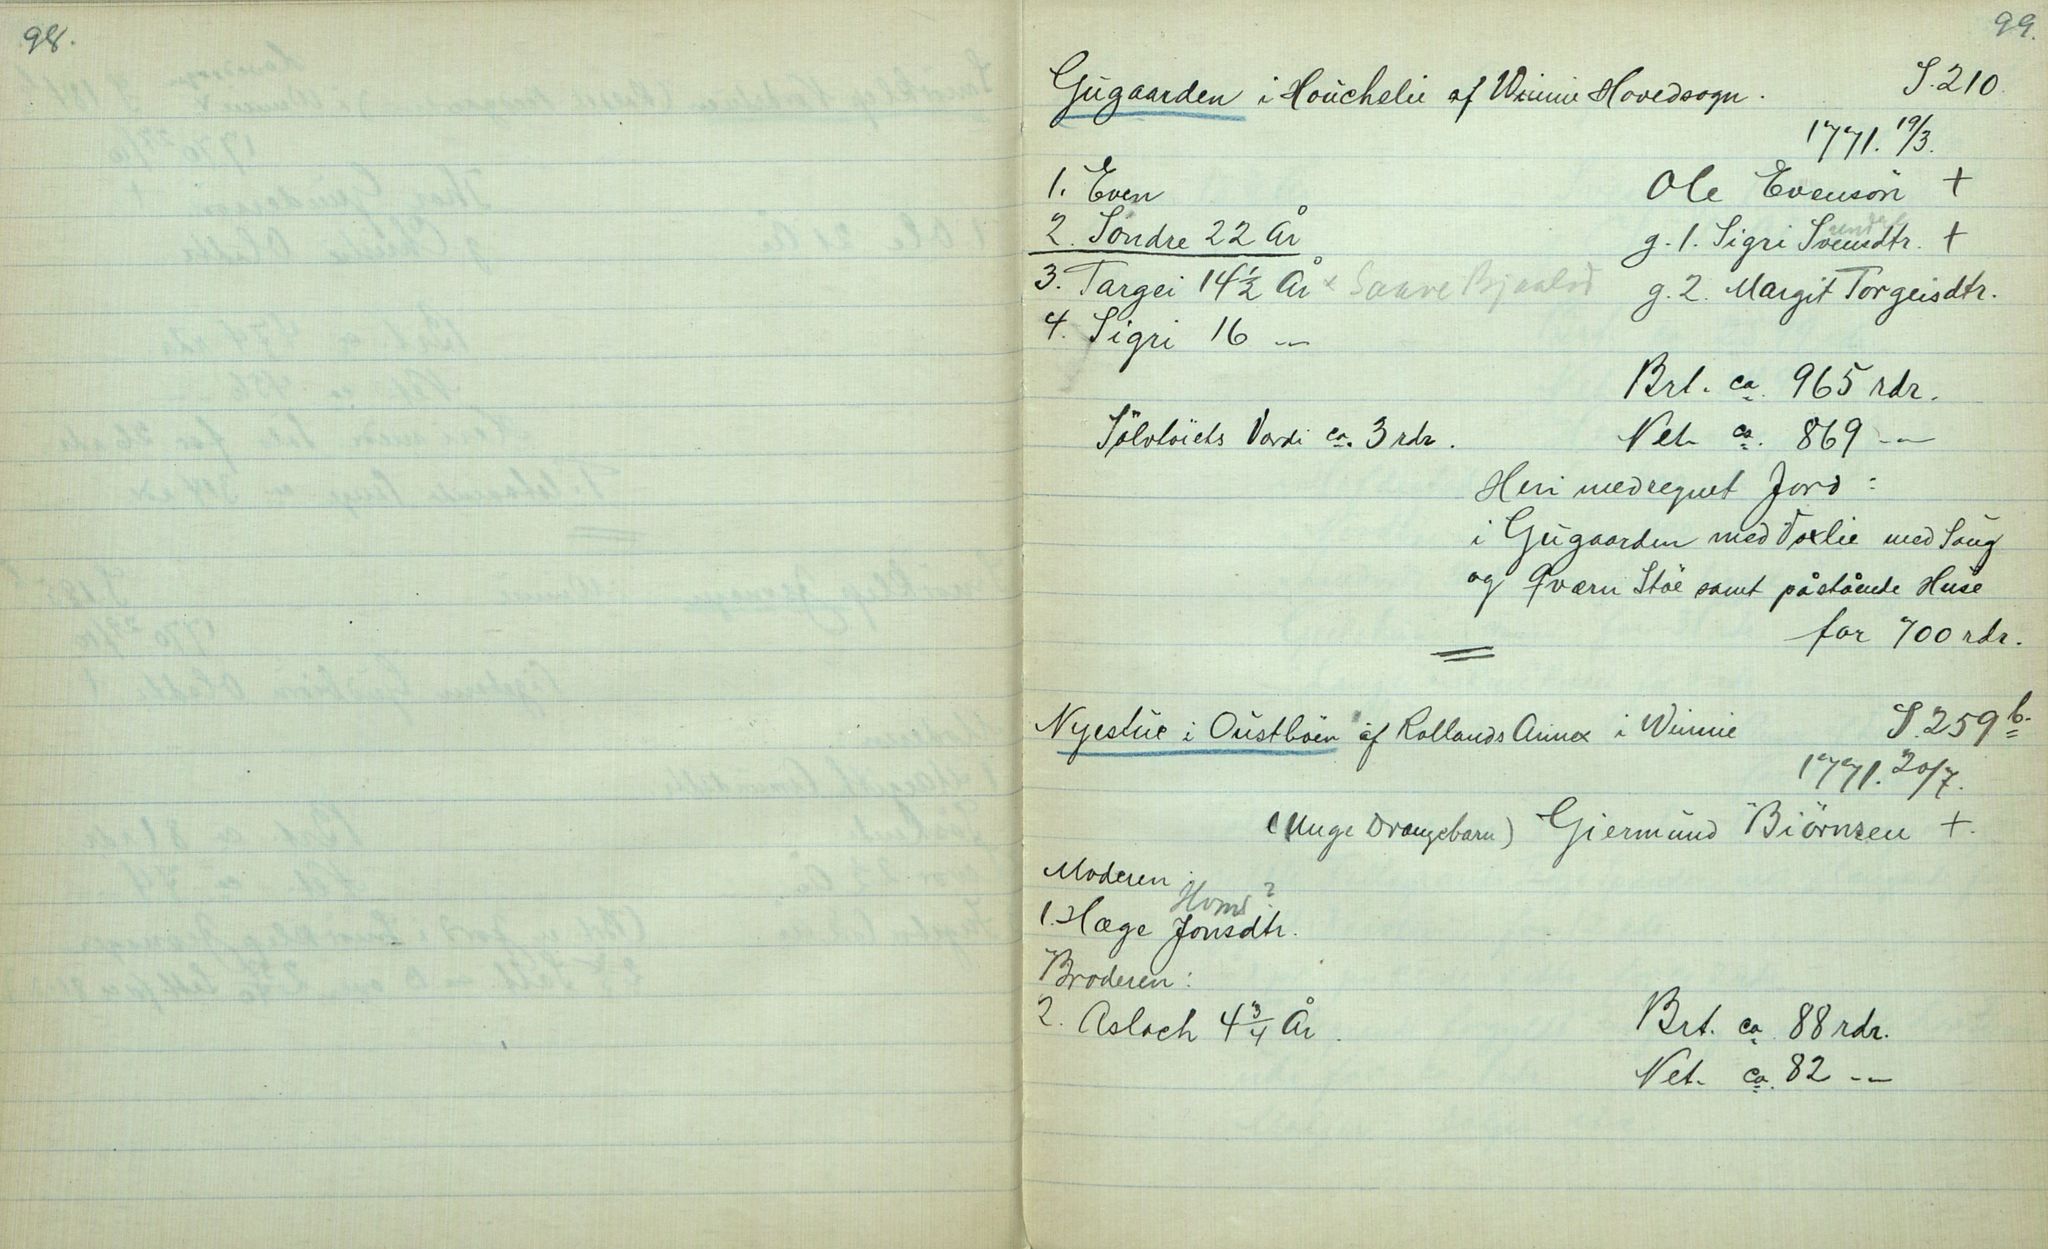 98.
99.
Gügaarden i Houchelie af Winnie Hovedsogn. S. 210
1771. 19/3.
1. Even Ole Evensön +
2. Söndre 22 År g. 1. Sigri Svensdtr. +
3. Targei 14½ År x g. 2. Margit Torgeisdtr.
4. Sigri 16 —
Brt. ca. 965 rdr.
Sölvtöiets Værdi ca. 3 rdr. Net. ca. 869 —
Heri medregnet Jord:
i Gügaarden med Voxlie med Saug
og Qværn Stöe samt påstående Huse
for 700 rdr.
Nyestüe i Oustböen af Rollands Annex i Winnie S. 259 b.
1771. 20/7.
(Unge Drængebarn) Giermünd Biörnsen +.
Moderen
Homs?
1. Hæge Jonsdtr.
Broderen:
2. Aslach 4¾ År. Brt. ca. 88 rdr.
Net. ca. 82 —